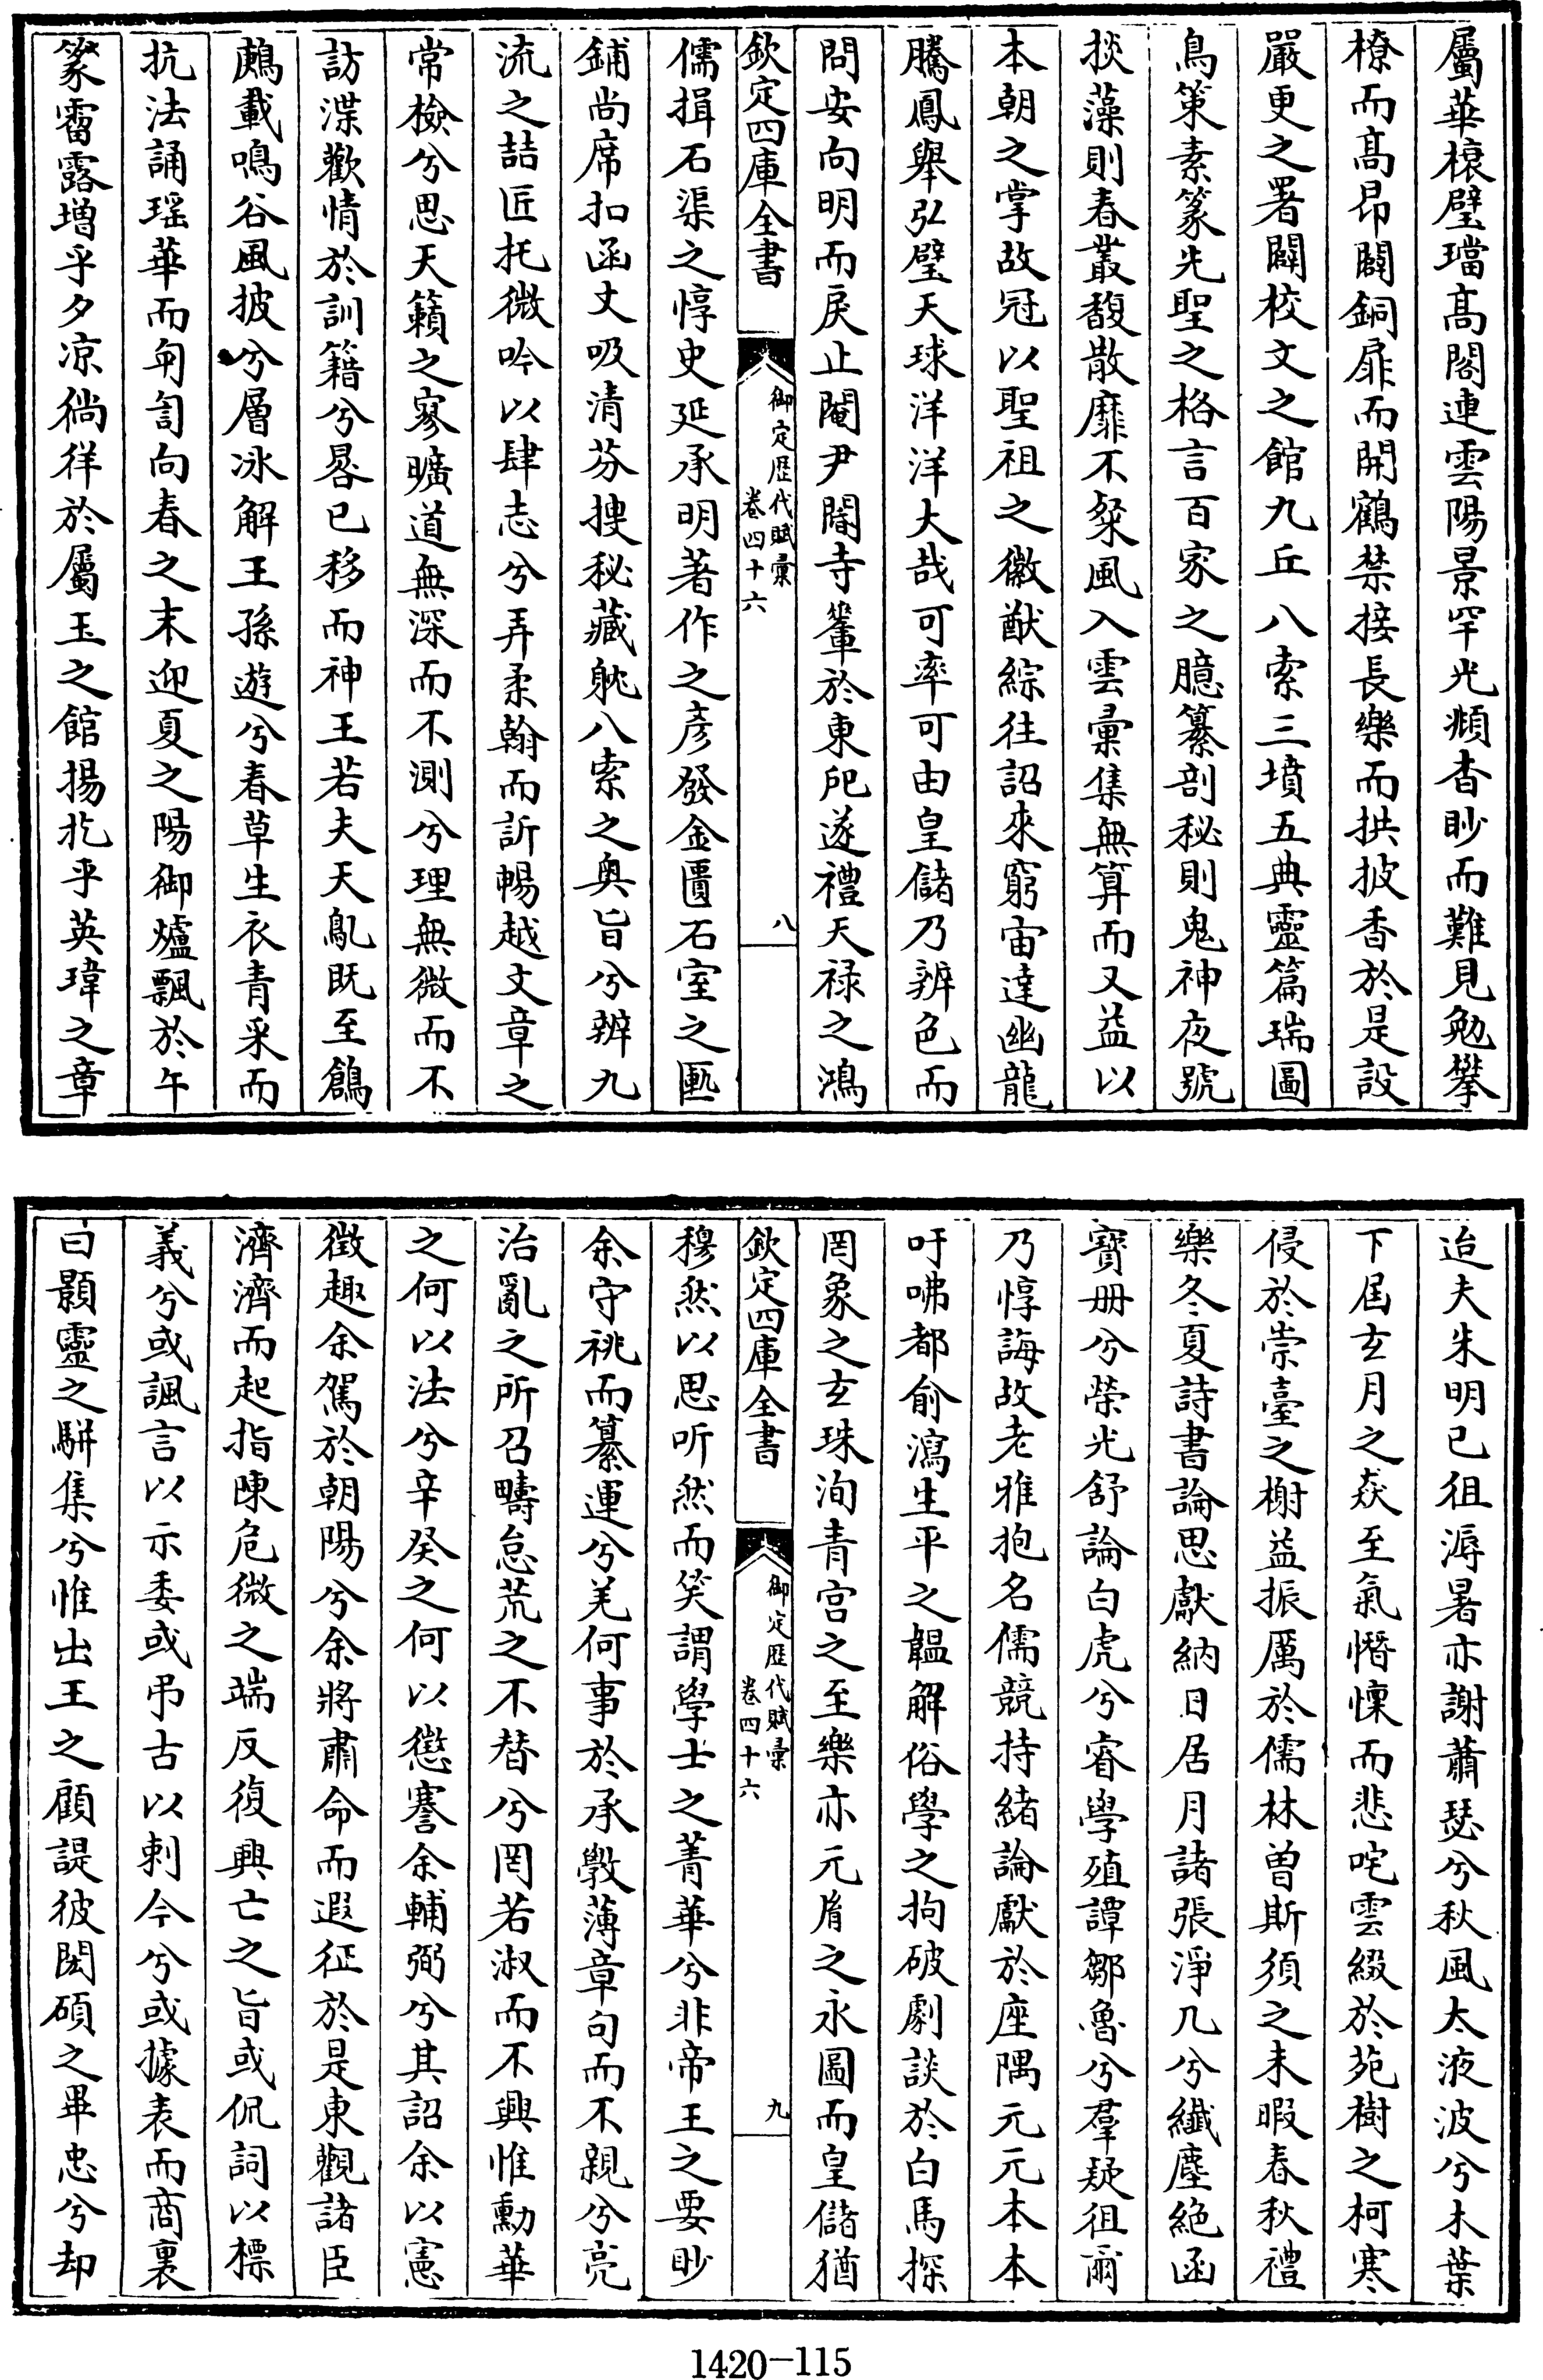 屬華榱璧璫髙閣連雲陽景罕光頫杳眇而難見勉攀
橑而髙昂闢銅扉而開鶴禁接長樂而拱披香於是設
嚴更之署闢校文之館九丘八索三墳五典靈篇瑞圖
鳥策素篆先聖之格言百家之臆纂剖秘則鬼神夜號
掞藻則春叢馥散靡不粲風入雲彚集無算而又益以
本朝之掌故冠以聖祖之徽猷綜往詔來窮宙達幽龍
騰鳳舉弘璧天球洋洋大哉可率可由皇儲乃辨色而
問安向明而戾止閹尹閽寺輦於東戺遂禮天禄之鴻
欽定四庫全書
御定歴代賦彚
卷四十六
八
儒揖石渠之惇史延承明著作之彦發金匱石室之匭
鋪尚席扣函丈吸清芬摉秘藏躭八索之奥旨兮辨九
流之喆匠托微吟以肆志兮弄柔翰而訢暢越文章之
常檢兮思天籟之寥曠道無深而不測兮理無微而不
訪渫歡情於訓籍兮晷已移而神王若夫天亂既至鶬
鷓載鳴谷風披兮層冰解王孫遊兮春草生衣青采而
抗法誦瑶華而匉訇向春之末迎夏之陽御爐飄於午
篆霤露增乎夕凉徜徉於屬玉之館揚扢乎英瑋之章
迨夫朱明已徂溽暑亦謝蕭瑟兮秋風太液波兮木葉
下届玄月之焱至氣憯懍而悲咤雲綴於苑樹之柯寒
侵於崇臺之榭益振厲於儒林曾斯須之未暇春秋禮
樂冬夏詩書論思獻納日居月諸張淨几兮纖塵絶函
寶册兮榮光舒論白虎兮睿學殖譚鄒魯兮羣疑徂爾
乃惇誨故老雅抱名儒競持緒論獻於座隅元元本本
吁咈都俞瀉生平之韞解俗學之拘破劇談於白馬探
罔象之玄珠洵青宫之至樂亦元脀之永圖而皇儲猶
欽定四庫全書
御定歴代賦彚
卷四十六
九
穆然以思听然而笑謂學士之菁華兮非帝王之要眇
余守祧而纂運兮羌何事於承斅薄章句而不親兮亮
治亂之所召疇怠荒之不替兮罔若淑而不興惟勳華
之何以法兮辛癸之何以懲謇余輔弼兮其詔余以憲
徴趣余駕於朝陽兮余將肅命而遐征於是東觀諸臣
濟濟而起指陳危微之端反復興亡之旨或侃詞以標
義兮或諷言以示委或弔古以刺今兮或據表而商裏
曰顥靈之駢集兮惟出王之顧諟彼閎碩之畢忠兮却
1420-115